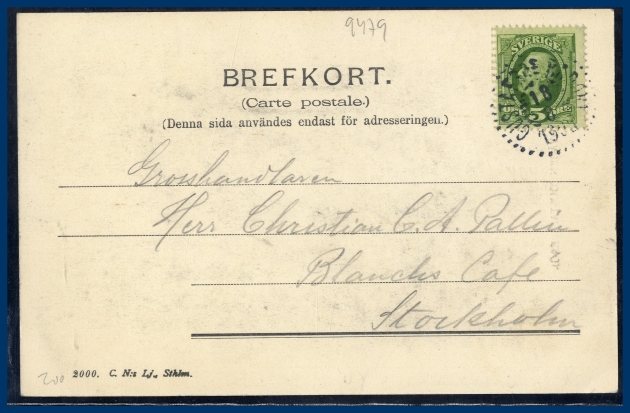 9479
SVERIGE
5
BREFKORT.
(Carte postale.)
(Denna sida användes endast för adresseringen.)
Grosshandlaren
Herr Christian C. A. Pallin
Blanchs Café
Stockholm
200
2000. C. N:s Lj., Sthlm.